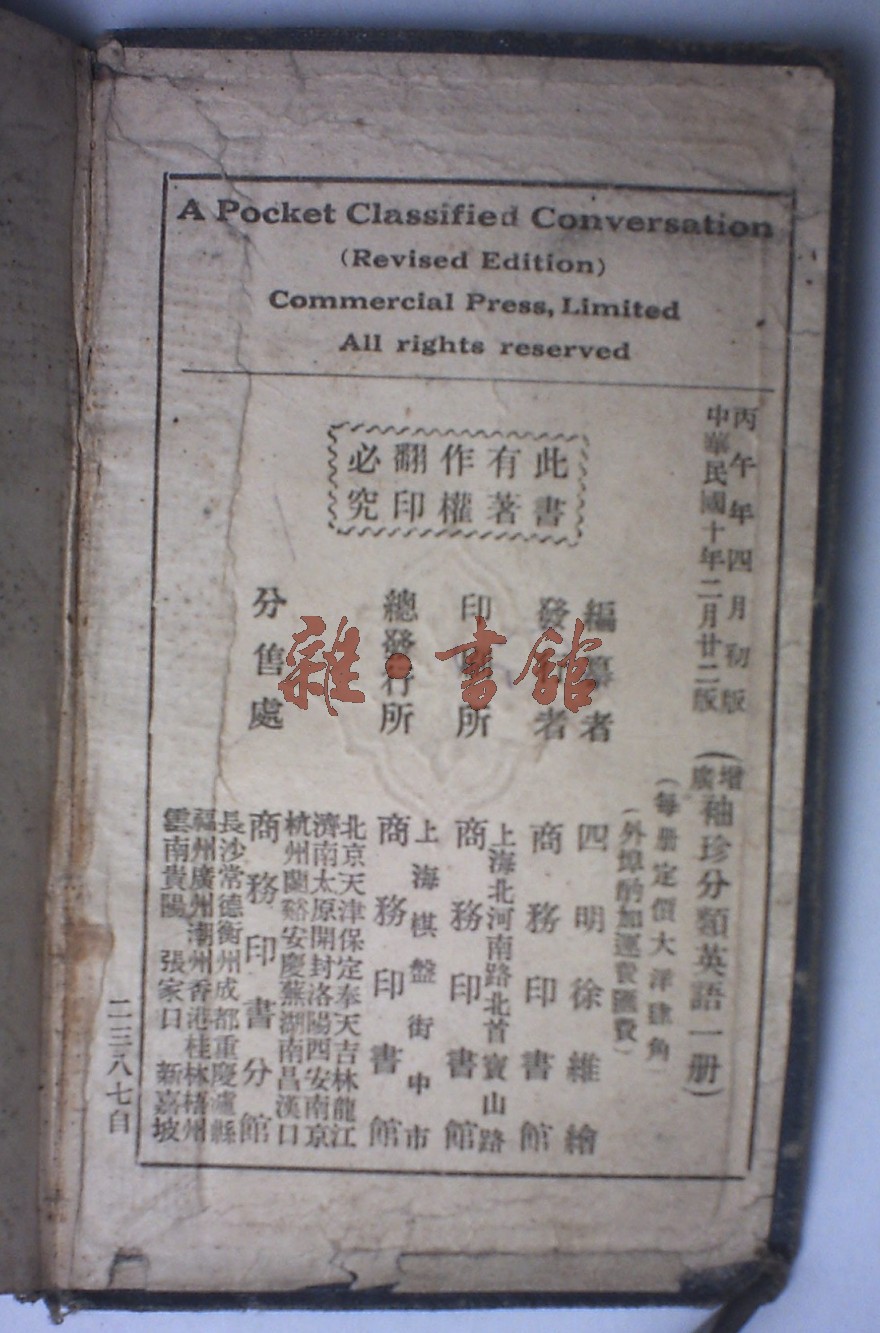 A Pocket Classified Conversation
(Revised Edition)
Commercial Press, Limited
All rights reserved
丙午年四月初版
中華民國十年二月廿二版
此書
有著
作權
翻印
必究
(增廣袖珍分類英語一册)
(每册定價大洋肆角)
(外埠酌加運費匯費)
編纂者
四明徐維繪
發行者
商務印書館
印刷所
上海北河南路北首寶山路
商務印書館
總發行所
上海棋盤街中市
商務印書館
分售處
北京天津保定奉天吉林龍江
濟南太原開封洛陽西安南京
杭州蘭谿安慶蕪湖南昌漢口
商務印書分館
長沙常德衡州成都重慶瀘縣
福州廣州潮州香港桂林梧州
雲南貴陽 張家口 新嘉坡
二三八七自
雜·書館